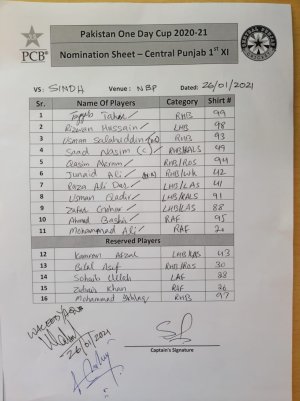 Pakistan One Day Cup 2020-21
PCB
Nomination Sheet – Central Punjab 1st XI
VS: SINDH Venue: NBP Dated: 26/01/2021
Sr. Name Of Players Category Shirt #
1 Tayyab Tahir RHB 99
2 Rizwan Hussain LHB 98
3 Usman Salahuddin RHB 93
4 Saad Nasim (C) RHB/RALS 49
5 Qasim Akram RHB/ROS 94
6 Junaid Ali RHB/WK 42
7 Raza Ali Dar LHB/LAS 41
8 Usman Qadir LHB/RALS 91
9 Zafar Gohar LHB/LAS 88
10 Ahmad Bashir RAF 95
11 Mohammad Ali RAF
Reserved Players
12 Kamran Afzal LHB/RAS 43
13 Bilal Asif RHB/ROS 30
14 Sohaib Ullah LAF
15 Khan RAF 26
16 Mohammad Ikhlaq RHB 97
26/01/2021
Captain's Signature